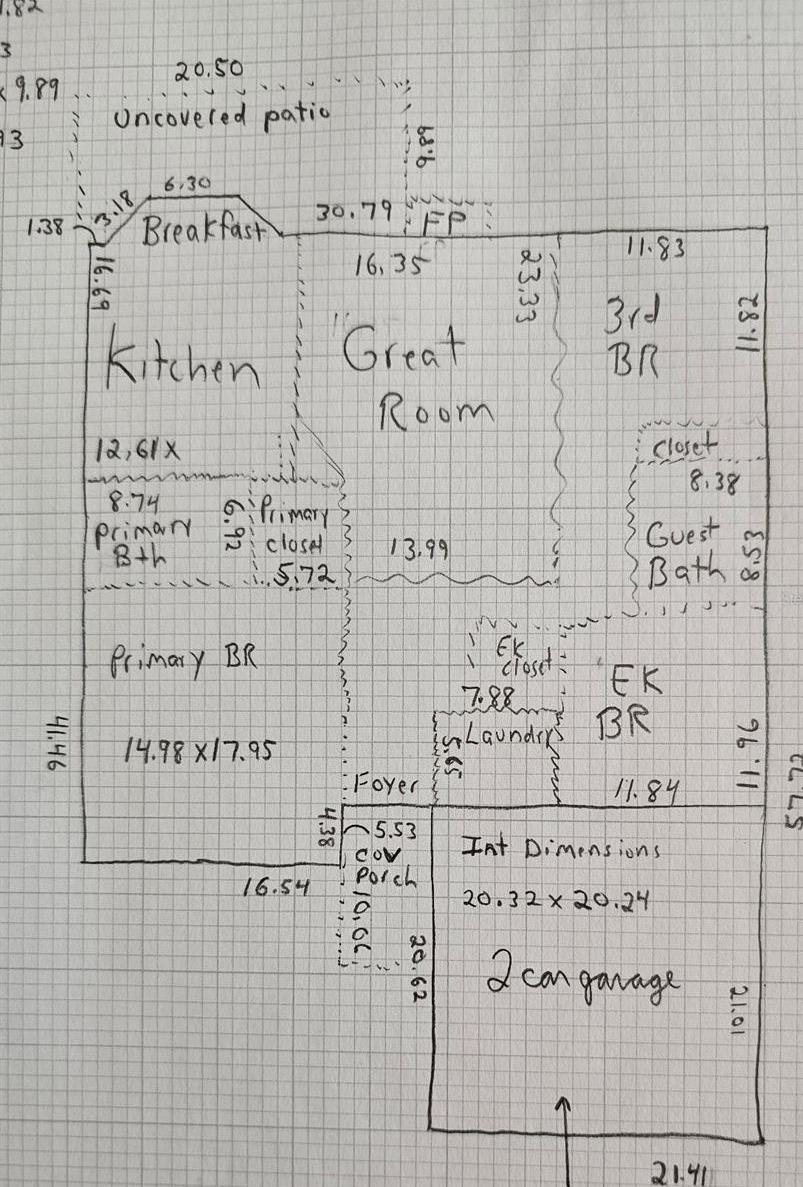 1.82
3
x 9.89
93
20.50
Uncovered patio
9.89
6.30
3.18
1.38
Breakfast
30.79
FP
16.69
16.35
23.33
11.83
11.82
Kitchen
Great
Room
3rd
BR
12.61 X
closet
8.38
8.74
Primary
Bth
6.92
Primary
closet
5.72
13.99
Guest
Bath
8.53
Primary BR
EK
closet
7.88
EK
BR
Laundry
5.65
41.46
14.98 X 17.95
11.96
57.75
Foyer
11.84
4.38
5.53
cov
Porch
10.06
16.54
Int Dimensions
20.32 x 20.24
20.62
2 car garage
21.01
21.41